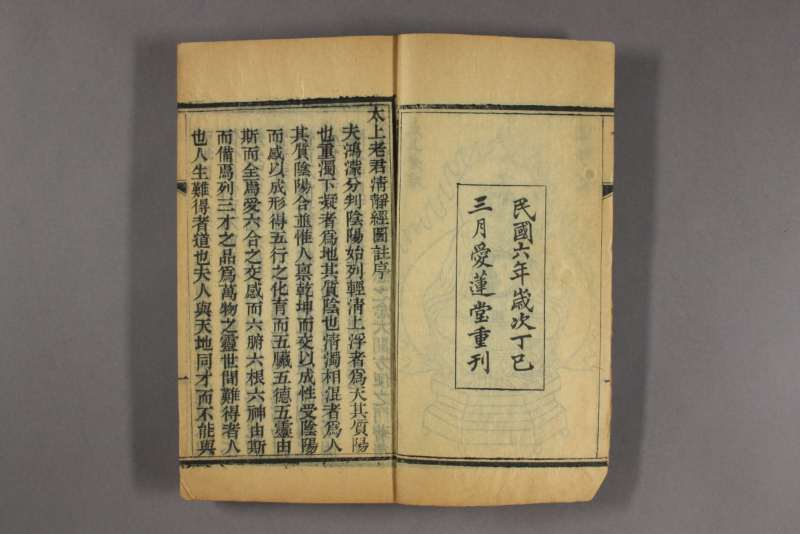 民國六年歲次丁巳
三月愛蓮堂重刊
太上老君清靜經圖註序
夫鴻濛分判陰陽始列輕清上浮者為天其質陽
也重濁下凝者為地其質陰也清濁相混者為人
其質陰陽合並惟人禀乾坤而交以成性受陰陽
而感以成形得五行之化育而五臟五德五靈由
斯而全焉受六合之交感而六腑六根六神由斯
而備焉列三才之品為萬物之靈世間難得者人
也人生難得者道也夫人與天地同才而不能與